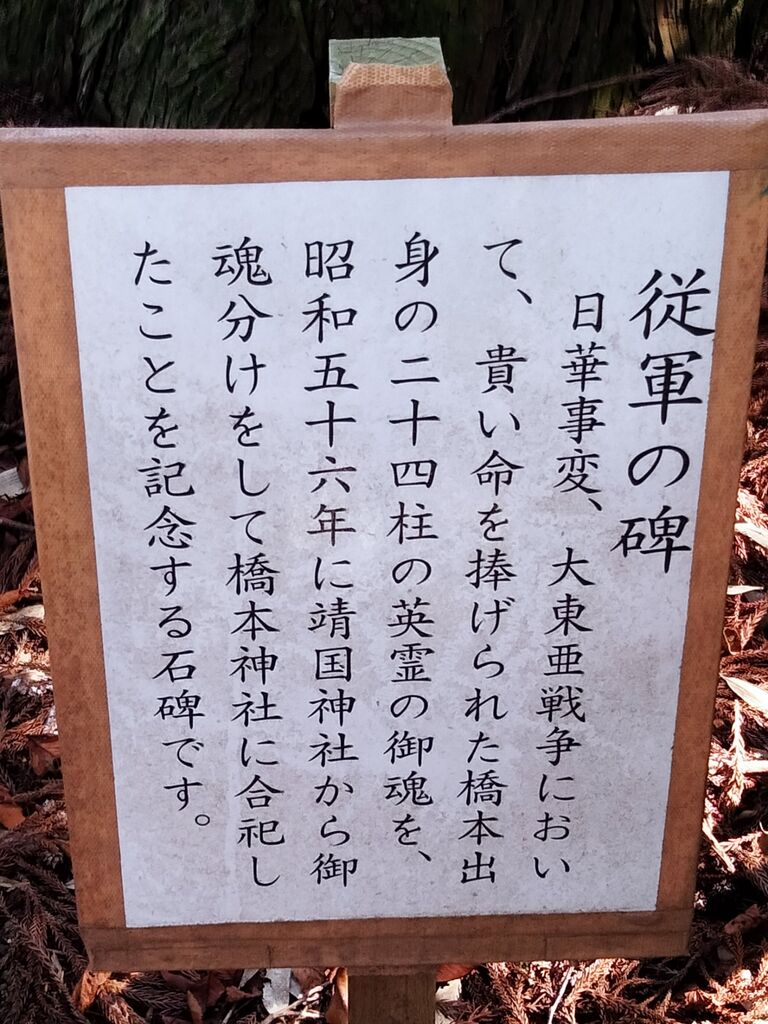 従軍の碑
日華事変、大東亜戦争におい
て、貴い命を捧げられた橋本出
身の二十四柱の英霊の御魂を、
昭和五十六年に靖国神社から御
魂分けをして橋本神社に合祀し
たことを記念する石碑です。